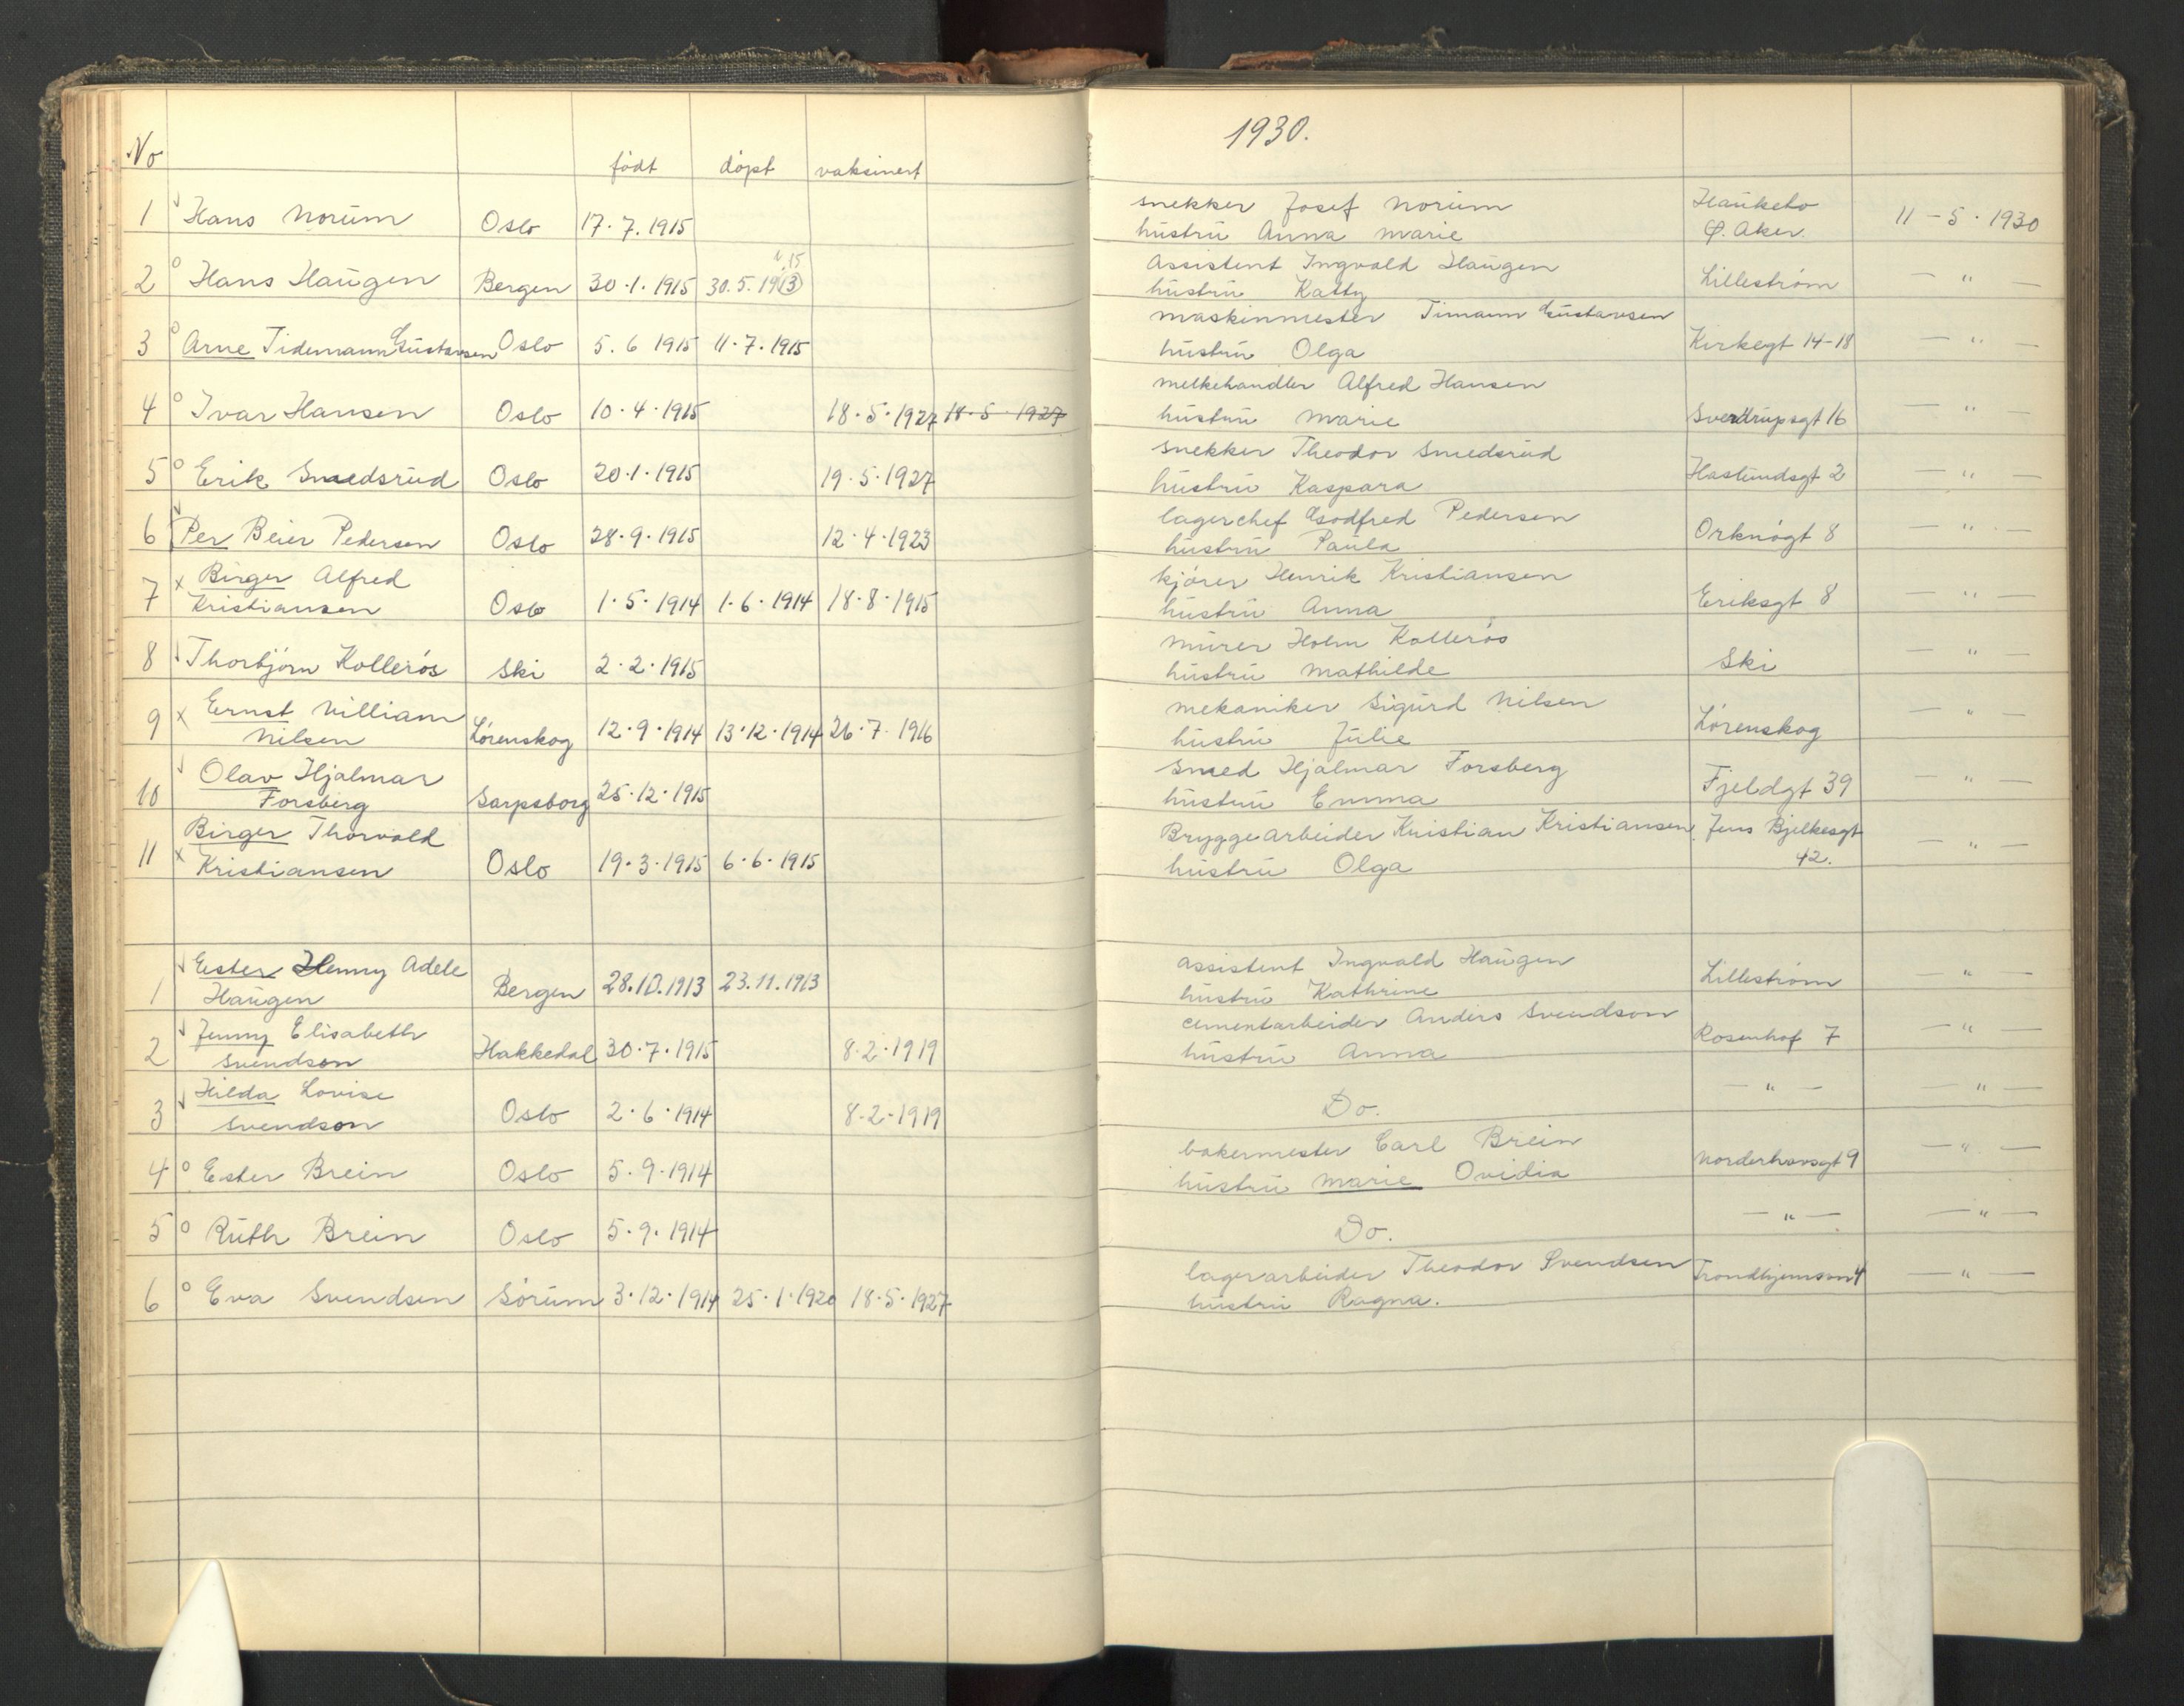 1930.
No
födt döpt vaksinert
1 Hans Norum Oslo 17.7.1915 snekker Josef Norum Hauketo 11-5.1930
hustru Anna Marie Ø. Aker.
2 Hans Haugen Bergen 30.1.1915 30.5.1913 15 Assistent Ingvald Haugen Lilleström — " —
hustru Katty
3 Arne Tidemann Gustavsen Oslo 5.6 1915 11.7.1915 maskinmester Timann Gustavsen Kirkegt 14-18 — " —
hustru Olga
4 Ivar Hansen Oslo 10.4.1915 18.5.1927 18.5.1927 melkehandler Alfred Hansen
hustru Marie Sverdrupsgt 16 — " —
5 Erik Smedsrud Oslo 20.1.1915 19.5.1927 snekker Theodor Smedsrud
hustru Kaspara Haslundsgt 2 — " —
6 Per Beier Pedersen Oslo 28.9.1915 12.4.1923 lagerchef Godfred Pedersen
hustru Paula Orknögt 8 — " —
7 Birger Alfred
Kristiansen Oslo 1.5.1914 1.6.1914 18.8.1915 kjörer Henrik Kristiansen
hustru Anna Eriksgt 8 — " —
8 Thorbjörn Kollerös Ski 2.2.1915 murer Holm Kollerös
hustru Mathilde Ski — " —
9 Ernst William
Nilsen Lörenskog 12.9.1914 13.12.1914 26.7.1916 mekaniker Sigurd Nilsen
hustru Julie Lörenskog — " —
10 Olav Hjalmar
Forsberg Sarpsborg 25.12.1915 smed Hjalmar Forsberg
hustru Emma Fjeldgt 39 — " —
11 Birger Thorvald
Kristiansen Oslo 19.3.1915 6.6.1915 Bryggearbeider Kristian Kristiansen Jens Bjelkesgt
hustru Olga 42. — " —
1 Ester Henny Adele
Haugen Bergen 28.10.1913 23.11.1913 assistent Ingvald Haugen
hustru Kathrine Lilleström — " —
2 Jenny Elisabeth
Svendson Hakkedal 30.7.1915 8.2.1919 cementarbeider Anders Svendson
hustru Anna Rosenhof 7 — " —
3 Hilda Lovise
Svendson Oslo 2.6.1914 8.2.1919 Do. — " — — " —
4 Ester Brein Oslo 5.9.1914 bakermester Carl Brein
hustru Marie Ovidia Norderhovsgt 9 — " —
5 Ruth Brein Oslo 5.9.1914 Do. — " — — " —
6 Eva Svendsen Sörum 3.12.1914 25.1.1920 18.5.1927 lagerarbeider Theodor Svendsen Trondhjemsvn 4 — " —
hustru Ragna.